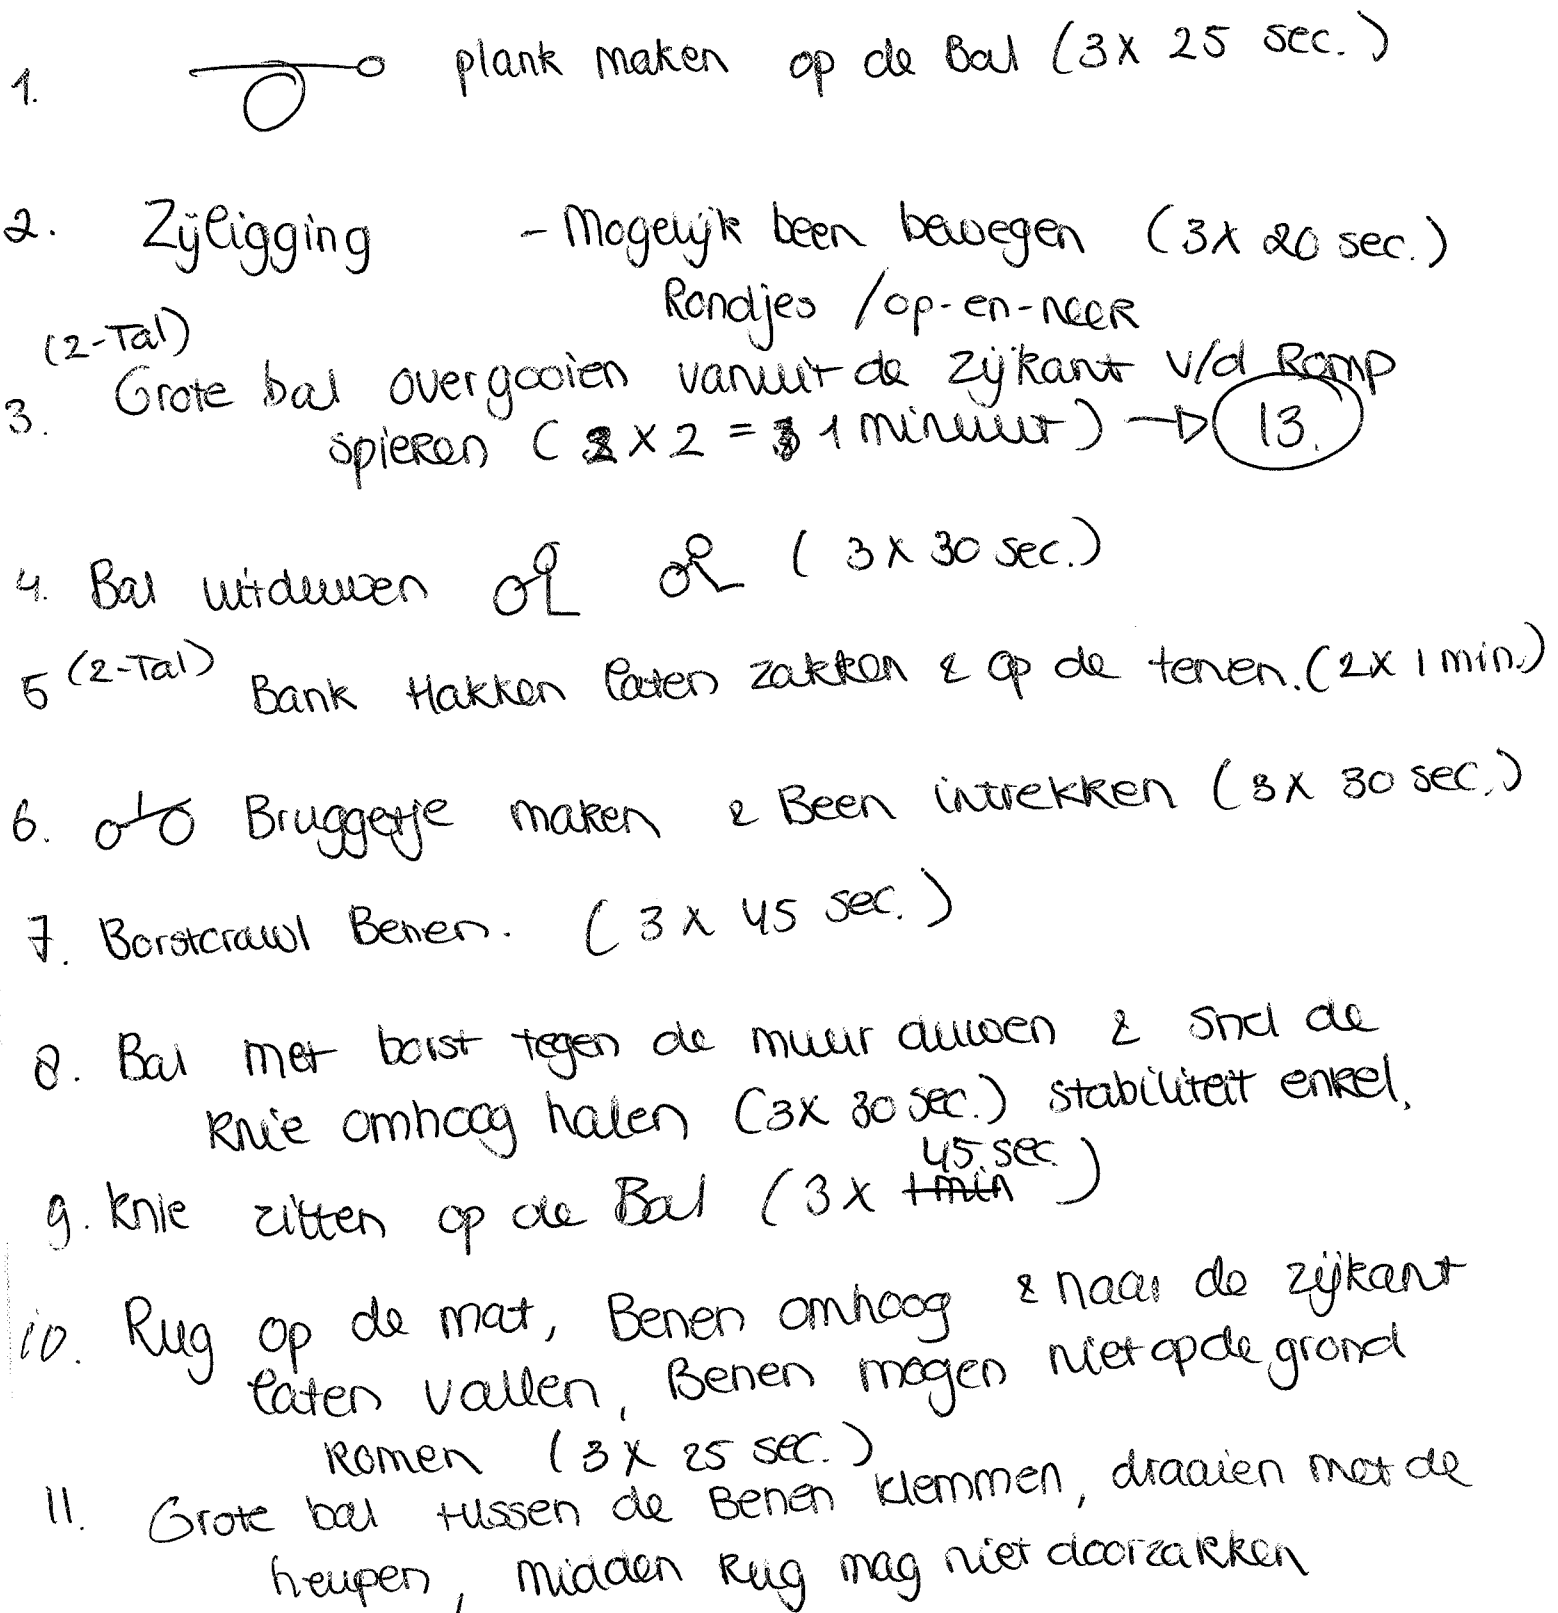 1. plank maken op de Bal (3 x 25 sec.)
2. Zijligging - Mogelijk been bewegen (3x 20 sec.)
Rondjes / op-en-neer
(2-Tal)
3. Grote bal overgooien vanuit de zijkant v/d Romp
spieren ( x 2 = 1 minuut) → 13.
4. Bal uitduwen (3 x 30 sec.)
5 (2-Tal) Bank Hakken laten zakken & op de tenen. (2x 1 min.)
6. Bruggetje maken & Been intrekken (3x 30 sec.)
7. Borstcrawl Benen. (3 x 45 sec.)
8. Bal met borst tegen de muur duwen & snel de
knie omhoog halen (3x 30 sec.) stabiliteit enkel.
45 sec.
9. knie zitten op de Bal (3 x 1 min)
10. Rug op de mat, Benen omhoog & naar de zijkant
laten vallen, Benen mogen niet op de grond
komen (3 x 25 sec.)
11. Grote bal tussen de Benen klemmen, draaien met de
heupen, midden Rug mag niet doorzakken